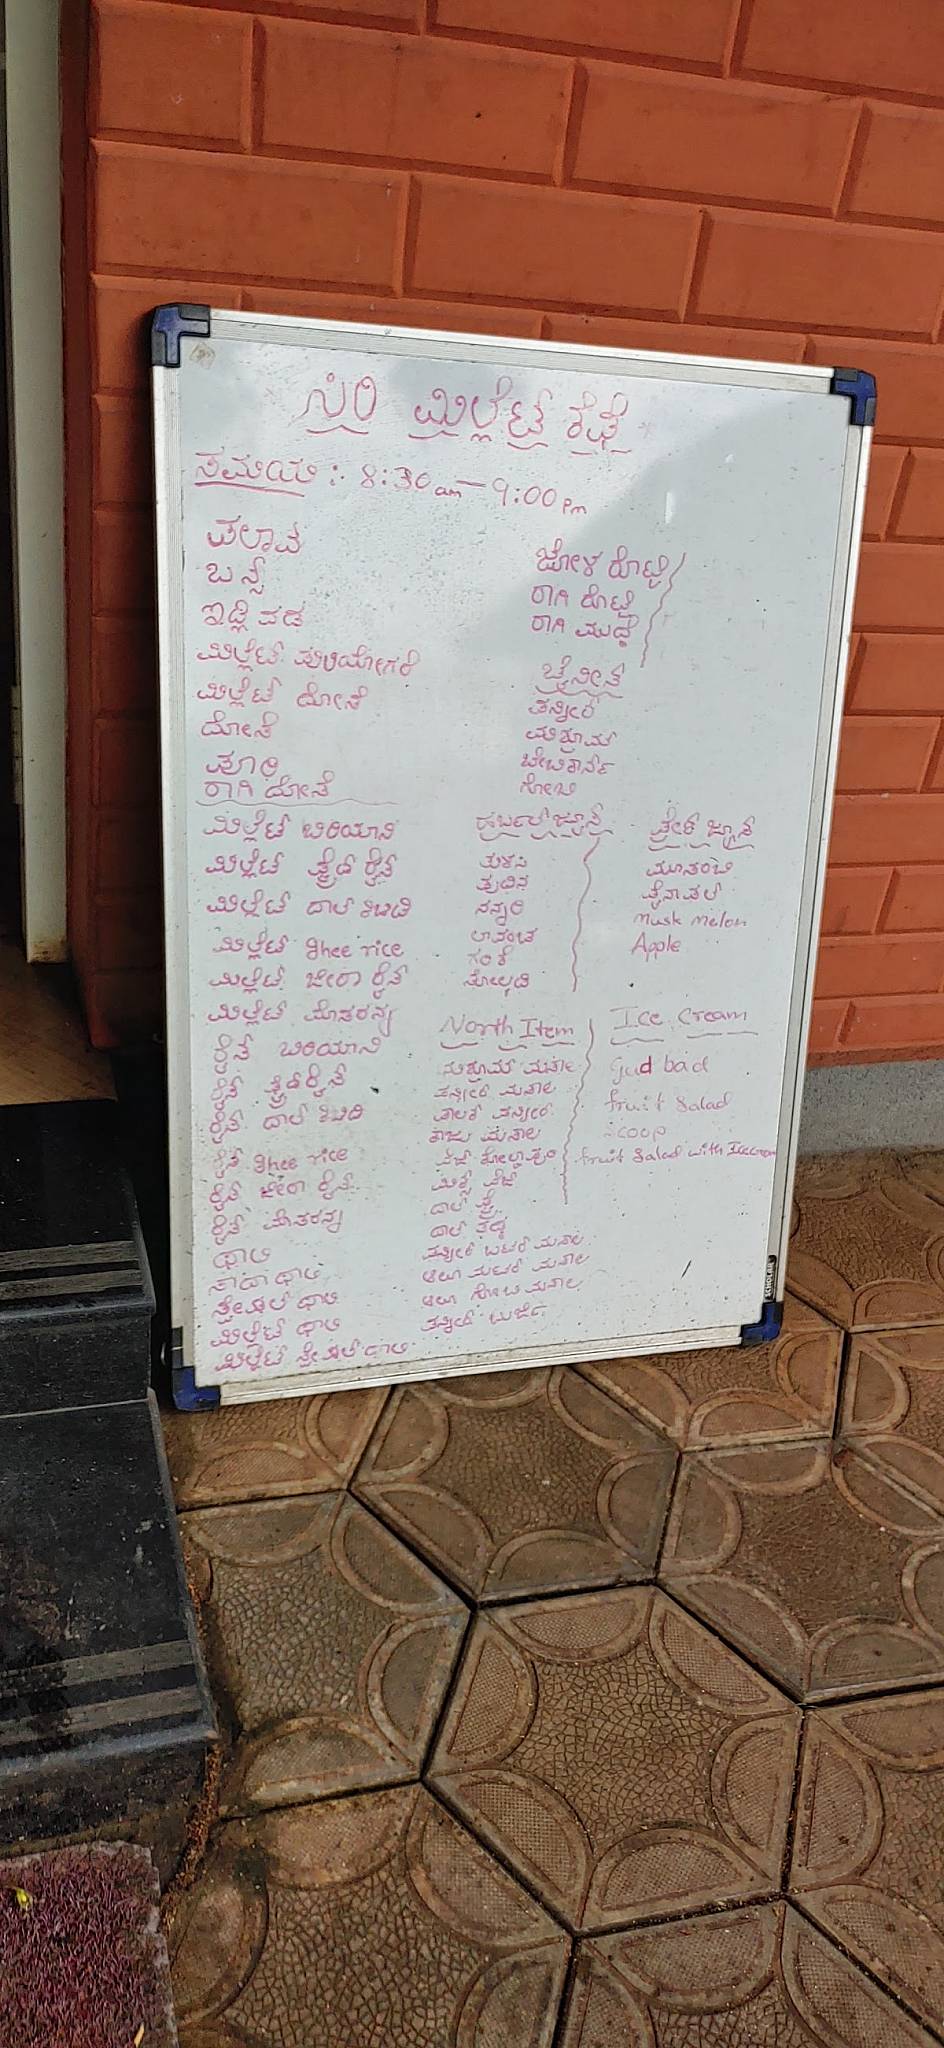 ಸಿರಿ ಮಿಲ್ಲೆಟ್ಸ್ ಕೆಫೆ
ಸಮಯ : 8:30 am - 9:00 pm
ಪಲಾವ
ಬನ್ಸ್
ಇಡ್ಲಿ ವಡ
ಮಿಲ್ಲೆಟ್ ಪುಳಿಯೋಗರೆ
ಮಿಲ್ಲೆಟ್ ದೋಸೆ
ದೋಸೆ
ಪೂರಿ
ರಾಗಿ ದೋಸೆ
ಜೋಳ ರೊಟ್ಟಿ
ರಾಗಿ ರೊಟ್ಟಿ
ರಾಗಿ ಮುದ್ದೆ
ಚೈನೀಸ್
ಪನ್ನೀರ್
ಮಶ್ರೂಮ್
ಬೇಬಿಕಾರ್ನ್
ಗೋಬಿ
ಮಿಲ್ಲೆಟ್ ಬಿರಿಯಾನಿ
ಮಿಲ್ಲೆಟ್ ಫ್ರೈಡ್ ರೈಸ್
ಮಿಲ್ಲೆಟ್ ದಾಲ್ ಕಿಚಿಡಿ
ಮಿಲ್ಲೆಟ್ ghee rice
ಮಿಲ್ಲೆಟ್ ಜೀರಾ ರೈಸ್
ಮಿಲ್ಲೆಟ್ ಮೊಸರನ್ನ
ರೈಸ್ ಬಿರಿಯಾನಿ
ರೈಸ್ ಫ್ರೈಡ್ ರೈಸ್
ರೈಸ್ ದಾಲ್ ಕಿಚಿಡಿ
ರೈಸ್ ghee rice
ರೈಸ್ ಜೀರಾ ರೈಸ್
ರೈಸ್ ಮೊಸರನ್ನ
ಥಾಲಿ
ಸಾದಾ ಥಾಲಿ
ಸ್ಪೇಷಲ್ ಥಾಲಿ
ಮಿಲ್ಲೆಟ್ ಥಾಲಿ
ಮಿಲ್ಲೆಟ್ ಸ್ಪೇಷಲ್ ಥಾಲಿ
ಹರ್ಬಲ್ ಜ್ಯೂಸ್
ತುಳಸಿ
ಪುದಿನ
ನನ್ನಾರಿ
ಲಾವಂಚ
ಗಂಧ
ಸೋಲ್ಕಡಿ
ಫ್ರೇಶ್ ಜ್ಯೂಸ್
ಮೂಸಂಬಿ
ಪೈನಾಪಲ್
Musk Melon
Apple
North Item
ಮಶ್ರೂಮ್ ಮಸಾಲ
ಪನ್ನೀರ್ ಮಸಾಲ
ಪಾಲಕ್ ಪನ್ನೀರ್
ಕಾಜು ಮಸಾಲ
ವೆಜ್ ಕೋಲ್ಹಾಪುರಿ
ಮಿಕ್ಸ್ ವೆಜ್
ದಾಲ್ ಫ್ರೈ
ದಾಲ್ ತಡ್ಕ
ಪನ್ನೀರ್ ಬಟರ್ ಮಸಾಲ
ಆಲೂ ಮಟರ್ ಮಸಾಲ
ಆಲೂ ಗೋಬಿ ಮಸಾಲ
ಪನ್ನೀರ್ ಬುರ್ಜಿ
Ice Cream
Gud bad
fruit Salad
Scoop
fruit Salad with Icecream